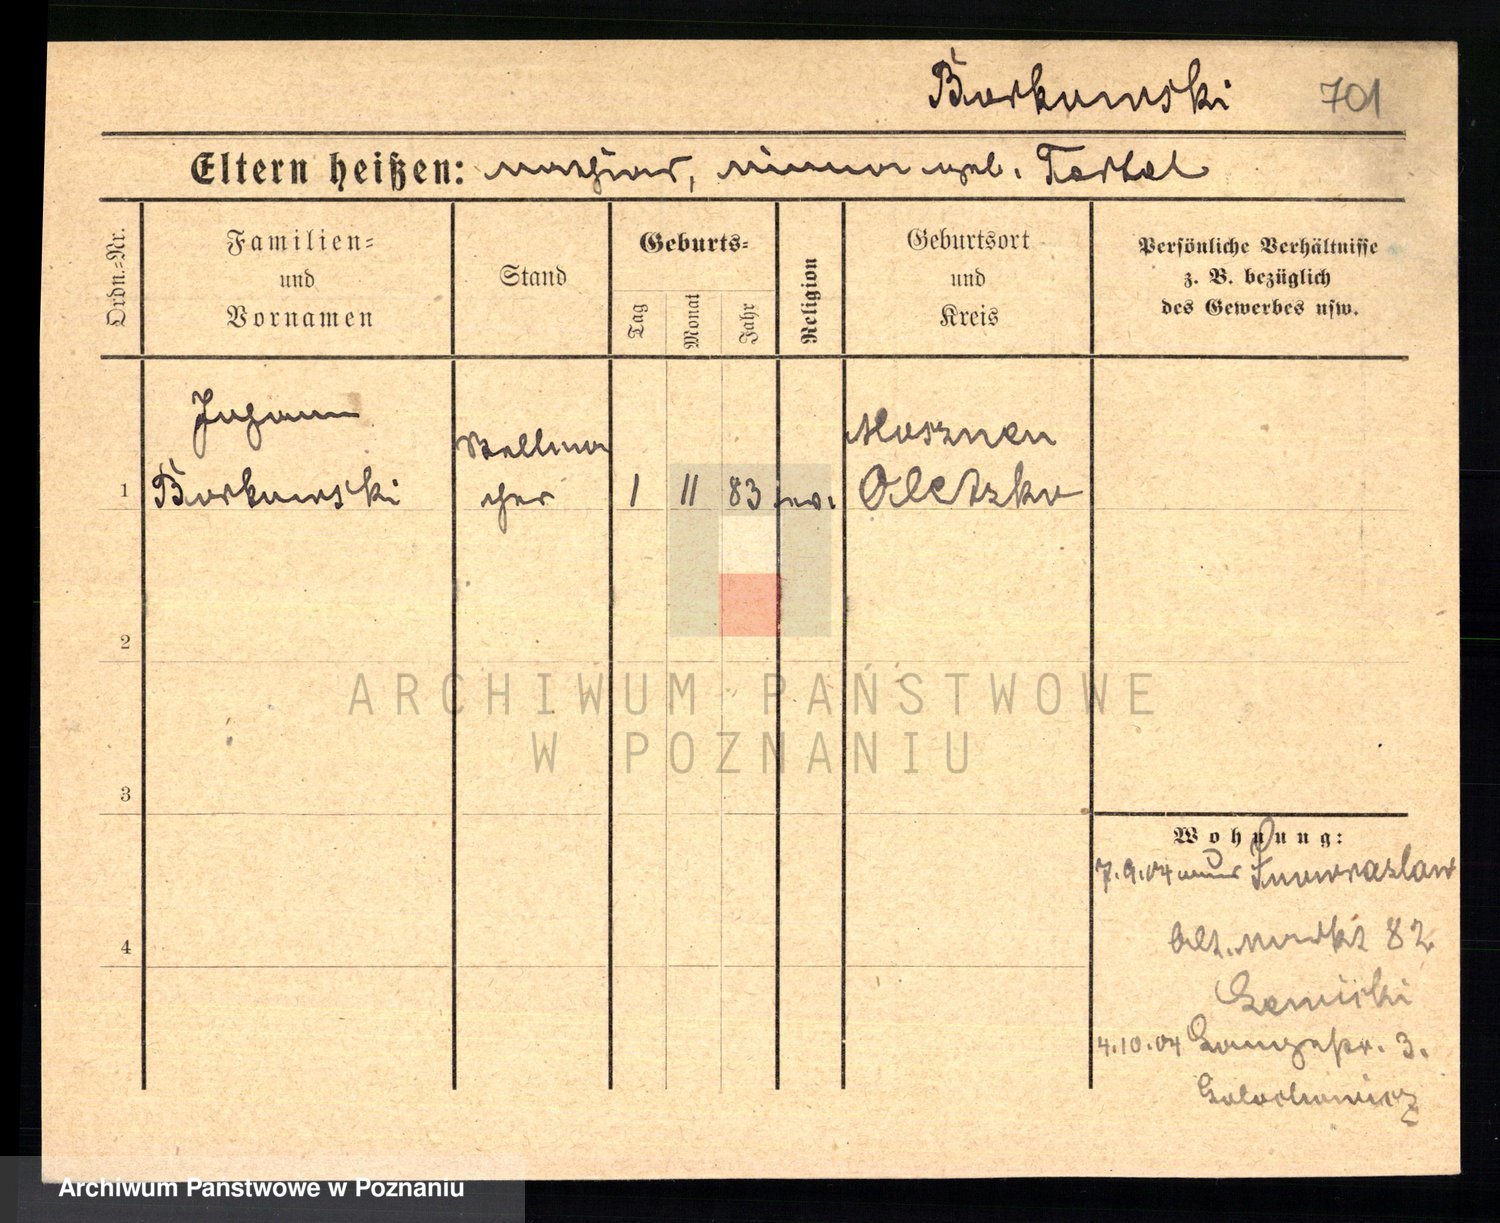 Borkowski 701
Eltern heißen: Mathias, Minna geb. Tostol
Ordn.=Nr.
Familien=
und
Vornamen
Stand
Geburts=
Tag
Monat
Jahr
Religion
Geburtsort
und
Kreis
Persönliche Verhältnisse
z. B. bezüglich
des Gewerbes usw.
Johann
Borkowski
1
Stellma
cher
1 11 83 ev.
Oletzko
2
3
4
Wohnung:
7.9.04 aus Inowrazlaw
Alt. Markt 82
4.10.04 Langestr. 3.
ARCHIWUM PAŃSTWOWE
W POZNANIU
Archiwum Państwowe w Poznaniu